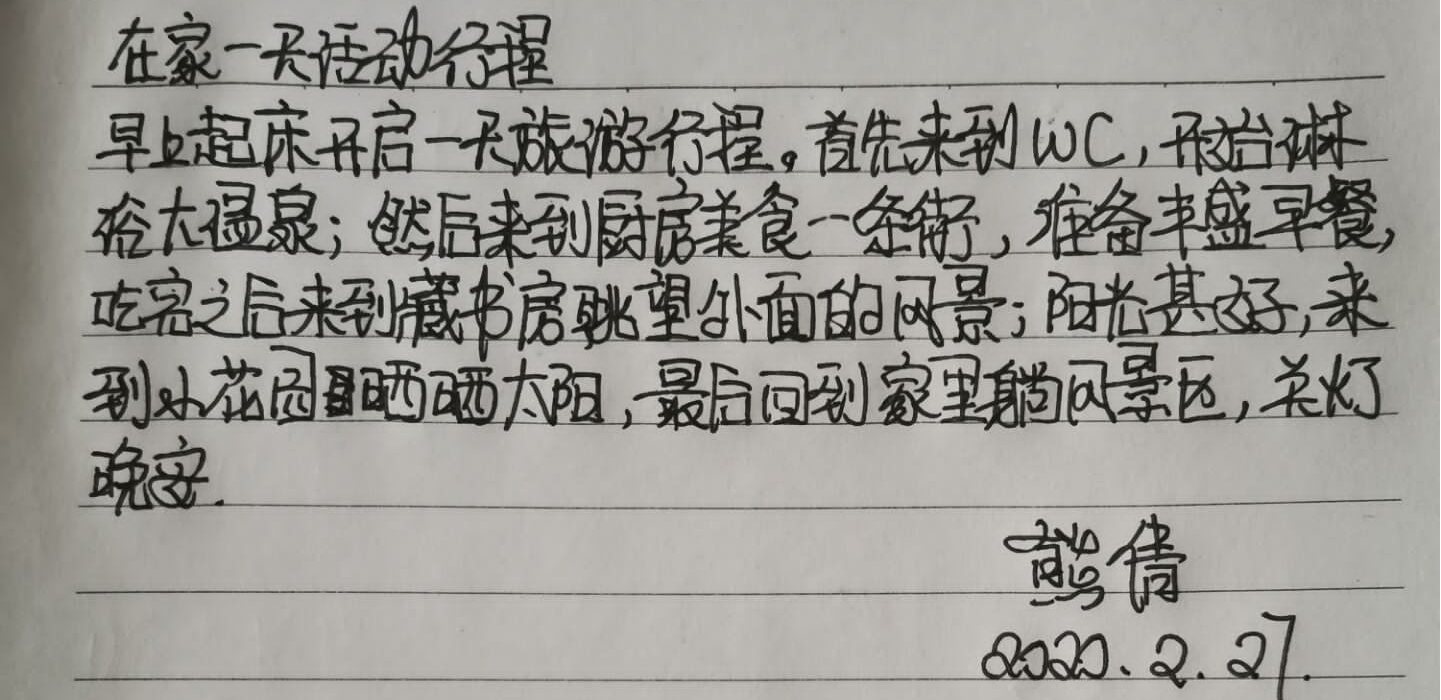 在家一天活动行程
早上起床开启一天旅游行程。首先来到WC,开始淋
浴大温泉;然后来到厨房美食一条街,准备丰盛早餐,
吃完之后来到藏书房眺望外面的风景;阳光甚好,来
到小花园晒晒太阳,最后回到家里躺风景区,关灯
晚安.
熊倩
2020.2.27.